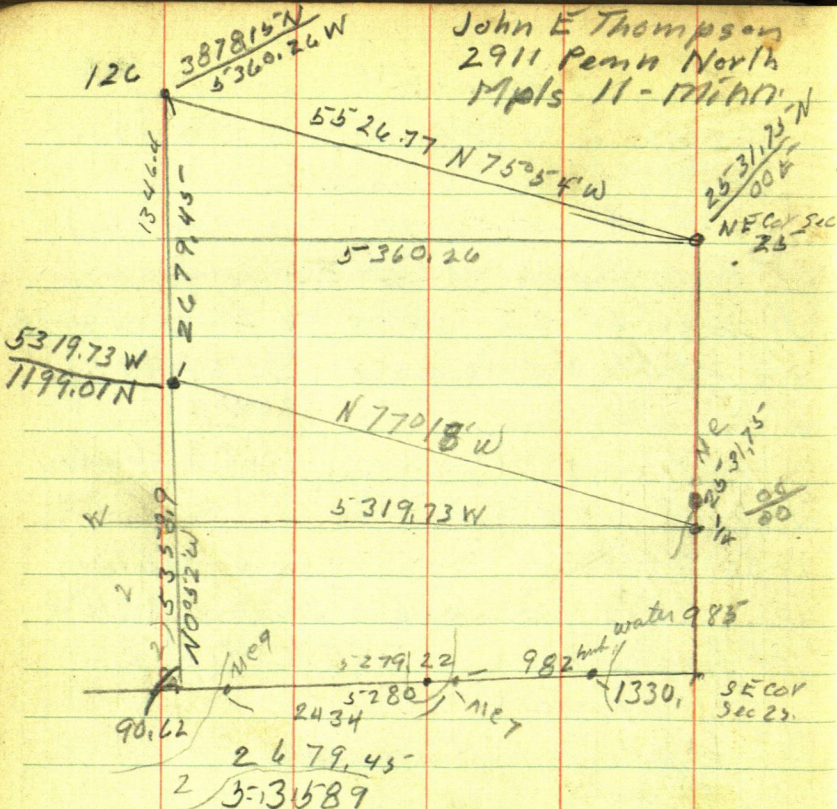 John E Thompson
2911 Penn North
Mpls 11 - Minn.
126
3878.15 N
5360.26 W
5526.77 N 75° 54' W
2531.75 N
00
NE Cor Sec
25
1346.4
2679.45
5360.26
5319.73 W
1199.01 N
N 77° 18' W
N E
2531.75
1/4
00
00
W
5319.73 W
2
2) 5358.9
N 0° 52' W
water 985
Me 9
5279.22
982 hub
5280
Me 7
1330.
SE Cor
Sec 25.
2434
90.62
2679.45
2 53589